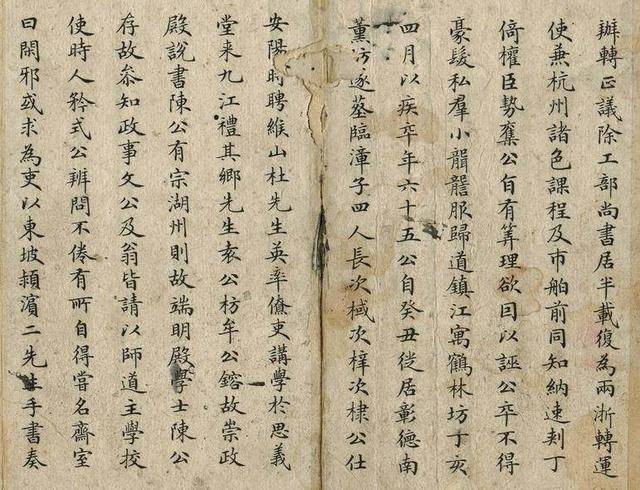 辦轉正議除工部尚書居半載復為兩浙轉運
使兼杭州諸色課程及市舶前同知納速剌丁
倚權臣勢公自有筭理欲因以誣公卒不得
豪髮私羣小讋服歸道鎮江寓鶴林坊丁亥
四月以疾卒年六十五公自癸丑徙居彰德南
薰遂墓臨漳子四人長次棫次梓次棣公仕
安陽時聘緱山杜先生英率僚吏講學於思義
堂来九江禮其鄉先生袁公枋牟公鎔故崇政
殿說書陳公有宗湖州則故端明殿學士陳公
存故叅知政事文公及翁皆請以師道主學校
使時人矜式公辨問不倦有所自得嘗名齋室
曰閑邪或求為吏以東坡頴濱二先生手書奏